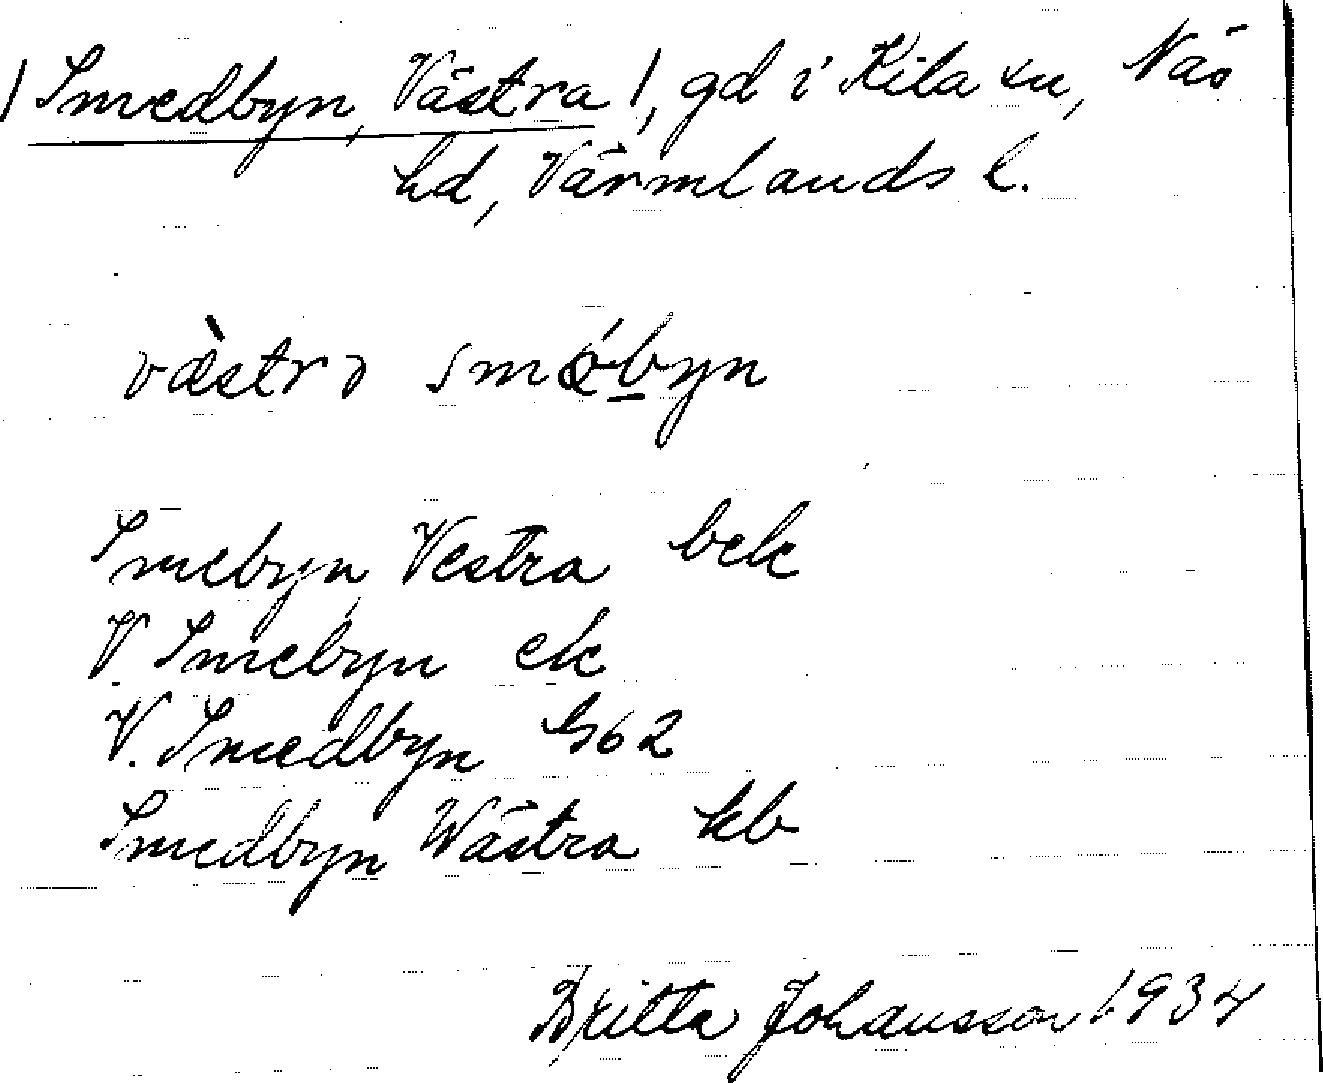 /Smedbyn, Västra/, gd i Kila sn, Näs
hd, Värmlands l.
væ̀strɔ smǿbyn
Smebyn, Vestra bek
V. Smebyn ek
V. Smedbyn G62
Smedbyn Wästra kb
Britta Johansson 1934